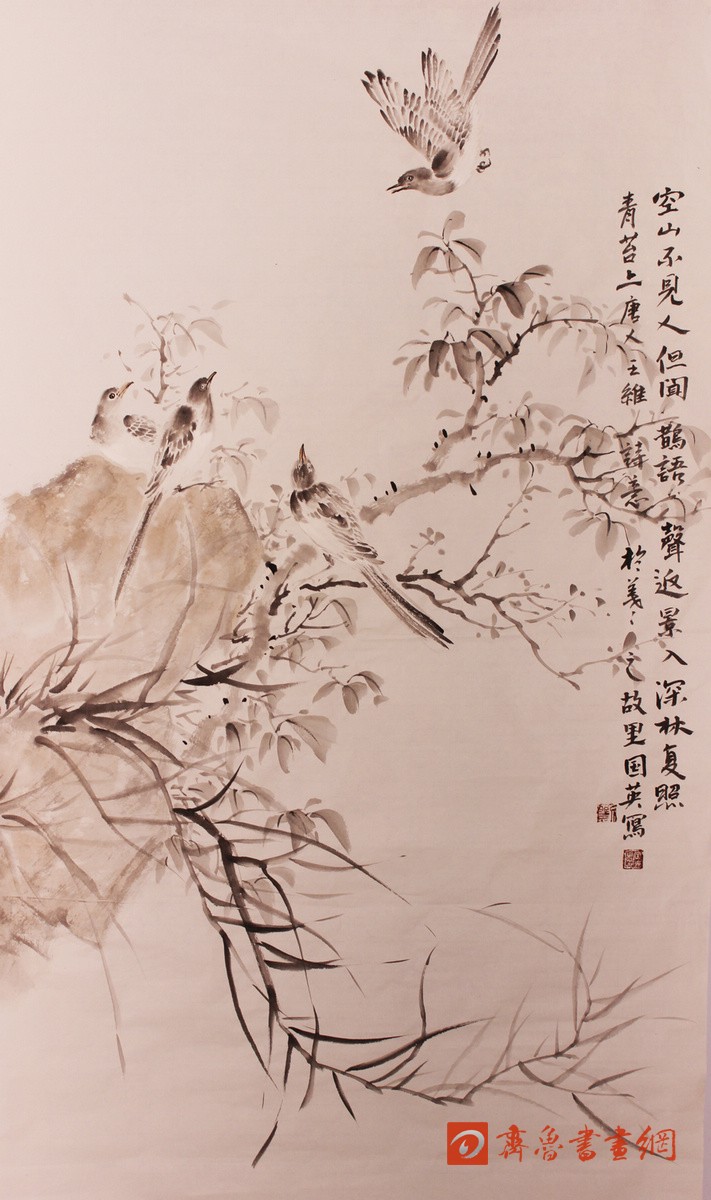 空山不見人但聞鵲語聲返景入深林复照
青苔上唐人王維詩意於羲之故里国英寫
齊魯書畫網